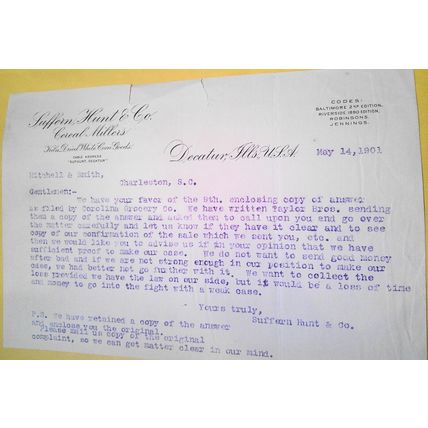 Suffern, Hunt & Co.
Cereal Millers
Kiln Dried White Corn Goods.
CABLE ADDRESS
"SUFHUNT, DECATUR"
CODES:
BALTIMORE 2ND EDITION.
RIVERSIDE 1890 EDITION.
ROBINSONS.
JENNINGS.
Decatur, Ills, U.S.A. May 14, 1901
Mitchell & Smith,
Charleston, S.C.
Gentlemen:-
We have your favor of the 9th. enclosing copy of answer
as filed by Carolina Grocery Co. We have written Taylor Bros. sending
them a copy of the answer and asked them to call upon you and go over
the matter carefully and let us know if they have it clear and to see
copy of our confirmation of the sale which we sent you, etc. and
then we would like you to advise us if in your opinion that we have
sufficient proof to make our case. We do not want to send good money
after bad and if we are not strong enough in our position to make our
case, we had better not go further with it. We want to collect the
loss provided we have the law on our side, but it would be a loss of time
and money to go into the fight with a weak case.
Yours truly,
Suffern Hunt & Co.
P.S. We have retained a copy of the answer
and enclose you the original.
Please mail us copy of the original
complaint, so we can get matter clear in our mind.